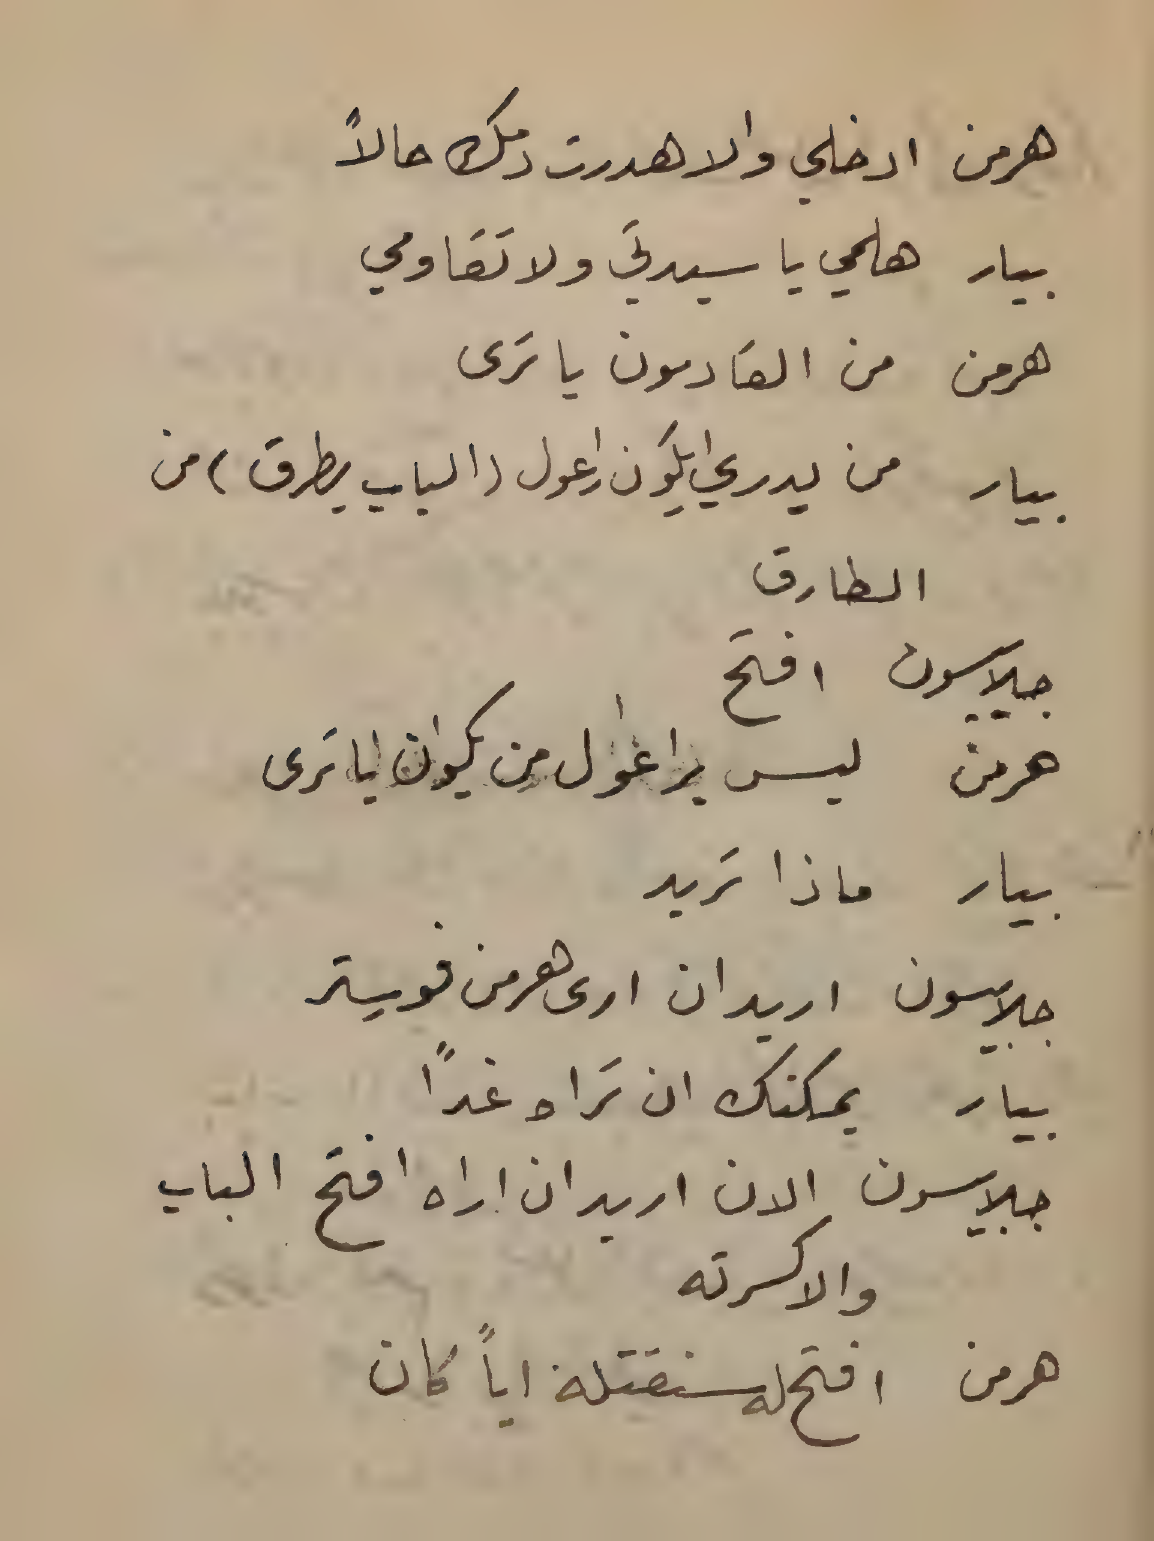 هرمن ادخلي والا هدرت دمك حالاً
بيار هلمي يا سيدتي ولا تقاومي
هرمن من القادمون يا ترى
بيار من يدري ايكون راعول (الباب يطرق) من
الطارق
جلابيسون افتح
هرمن ليس براغول من يكون يا ترى
بيار ماذا تريد
جلابيسون اريد ان ارى هرمن فورستر
بيار يمكنك ان تراه غداً
جلابيسون الان اريد ان اراه افتح الباب
والا كسرته
هرمن افتح له سنقتله اياً كان